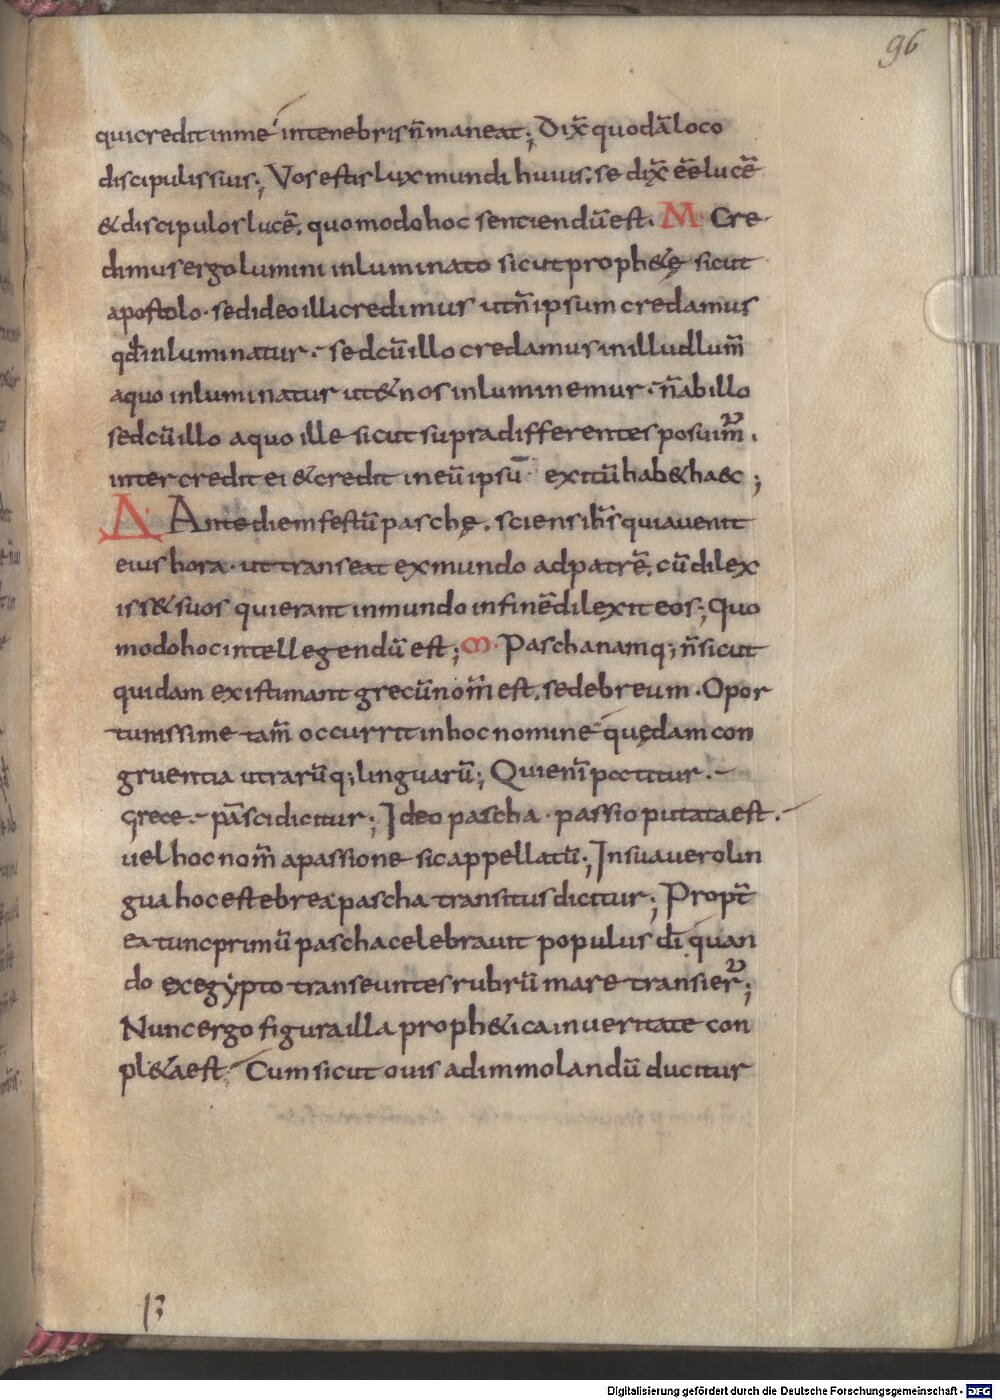 96
qui credit in me in tenebris n̄ maneat; Dix̄ quodā loco
discipulis suis; Vos estis lux mundi huius; se dix̄ eē lucē
& discipulos lucē. quomodo hoc sentiendū est. M Cre
dimus ergo lumini inluminato sicut proph&ę sicut
apostolo. sed ideo illi credimus ut n̄ ipsum credamus
qđ inluminatur. sed cū illo credamus in illud lum̄
a quo inluminatur ut & nos inluminemur. n̄ ab illo
sed cū illo a quo ille sicut supra differentes posuim̄.
inter credit ei & credit in eū ipsū exitū hab& haec;
Δ. Ante diem festū paschę. sciens ih̄s quia uenit
eius hora. ut transeat ex mundo ad patrē. cū dilex
iss& suos qui erant in mundo in finē dilexit eos; Quo
modo hoc intellegendū est; M. Pascha namq; n̄ sicut
quidam existimant grecū nom̄ est. sed ebreum. Opor
tunissime tam̄ occurrit in hoc nomine quędam con
gruentia utrarūq; linguarū; Qui enī pctitur.
grece. pāsci dicitur; Ideo pascha. passio putata est.
uel hoc nom̄ a passione sic appellatū; In sua uero lin
gua hoc est ebrea pascha transitus dicitur; Propt̄
ea tunc primū pascha celebrauit populus dī quan
do ex egẏpto transeuntes rubrū mare transier̄;
Nunc ergo figura illa proph&ica in ueritate con
pl&a est. Cum sicut ouis ad immolandū ducitur
13
Digitalisierung gefördert durch die Deutsche Forschungsgemeinschaft - DFG